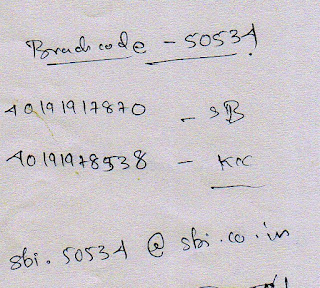 Brach code - 50534
40191917870 - SB
40191978538 - KCC
sbi.50534@sbi.co.in